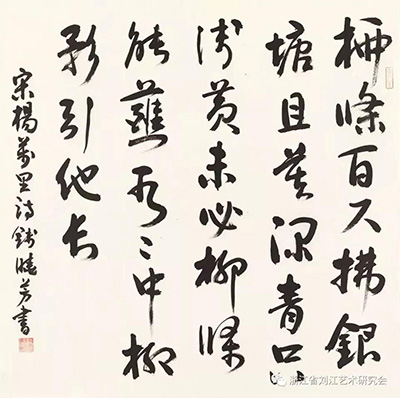 柳條百尺拂銀
塘且莫深青只
淺黃未必柳條
能蘸水〻中柳
影引他長
宋楊萬里詩錢曉芳書
浙江省刘江艺术研究会